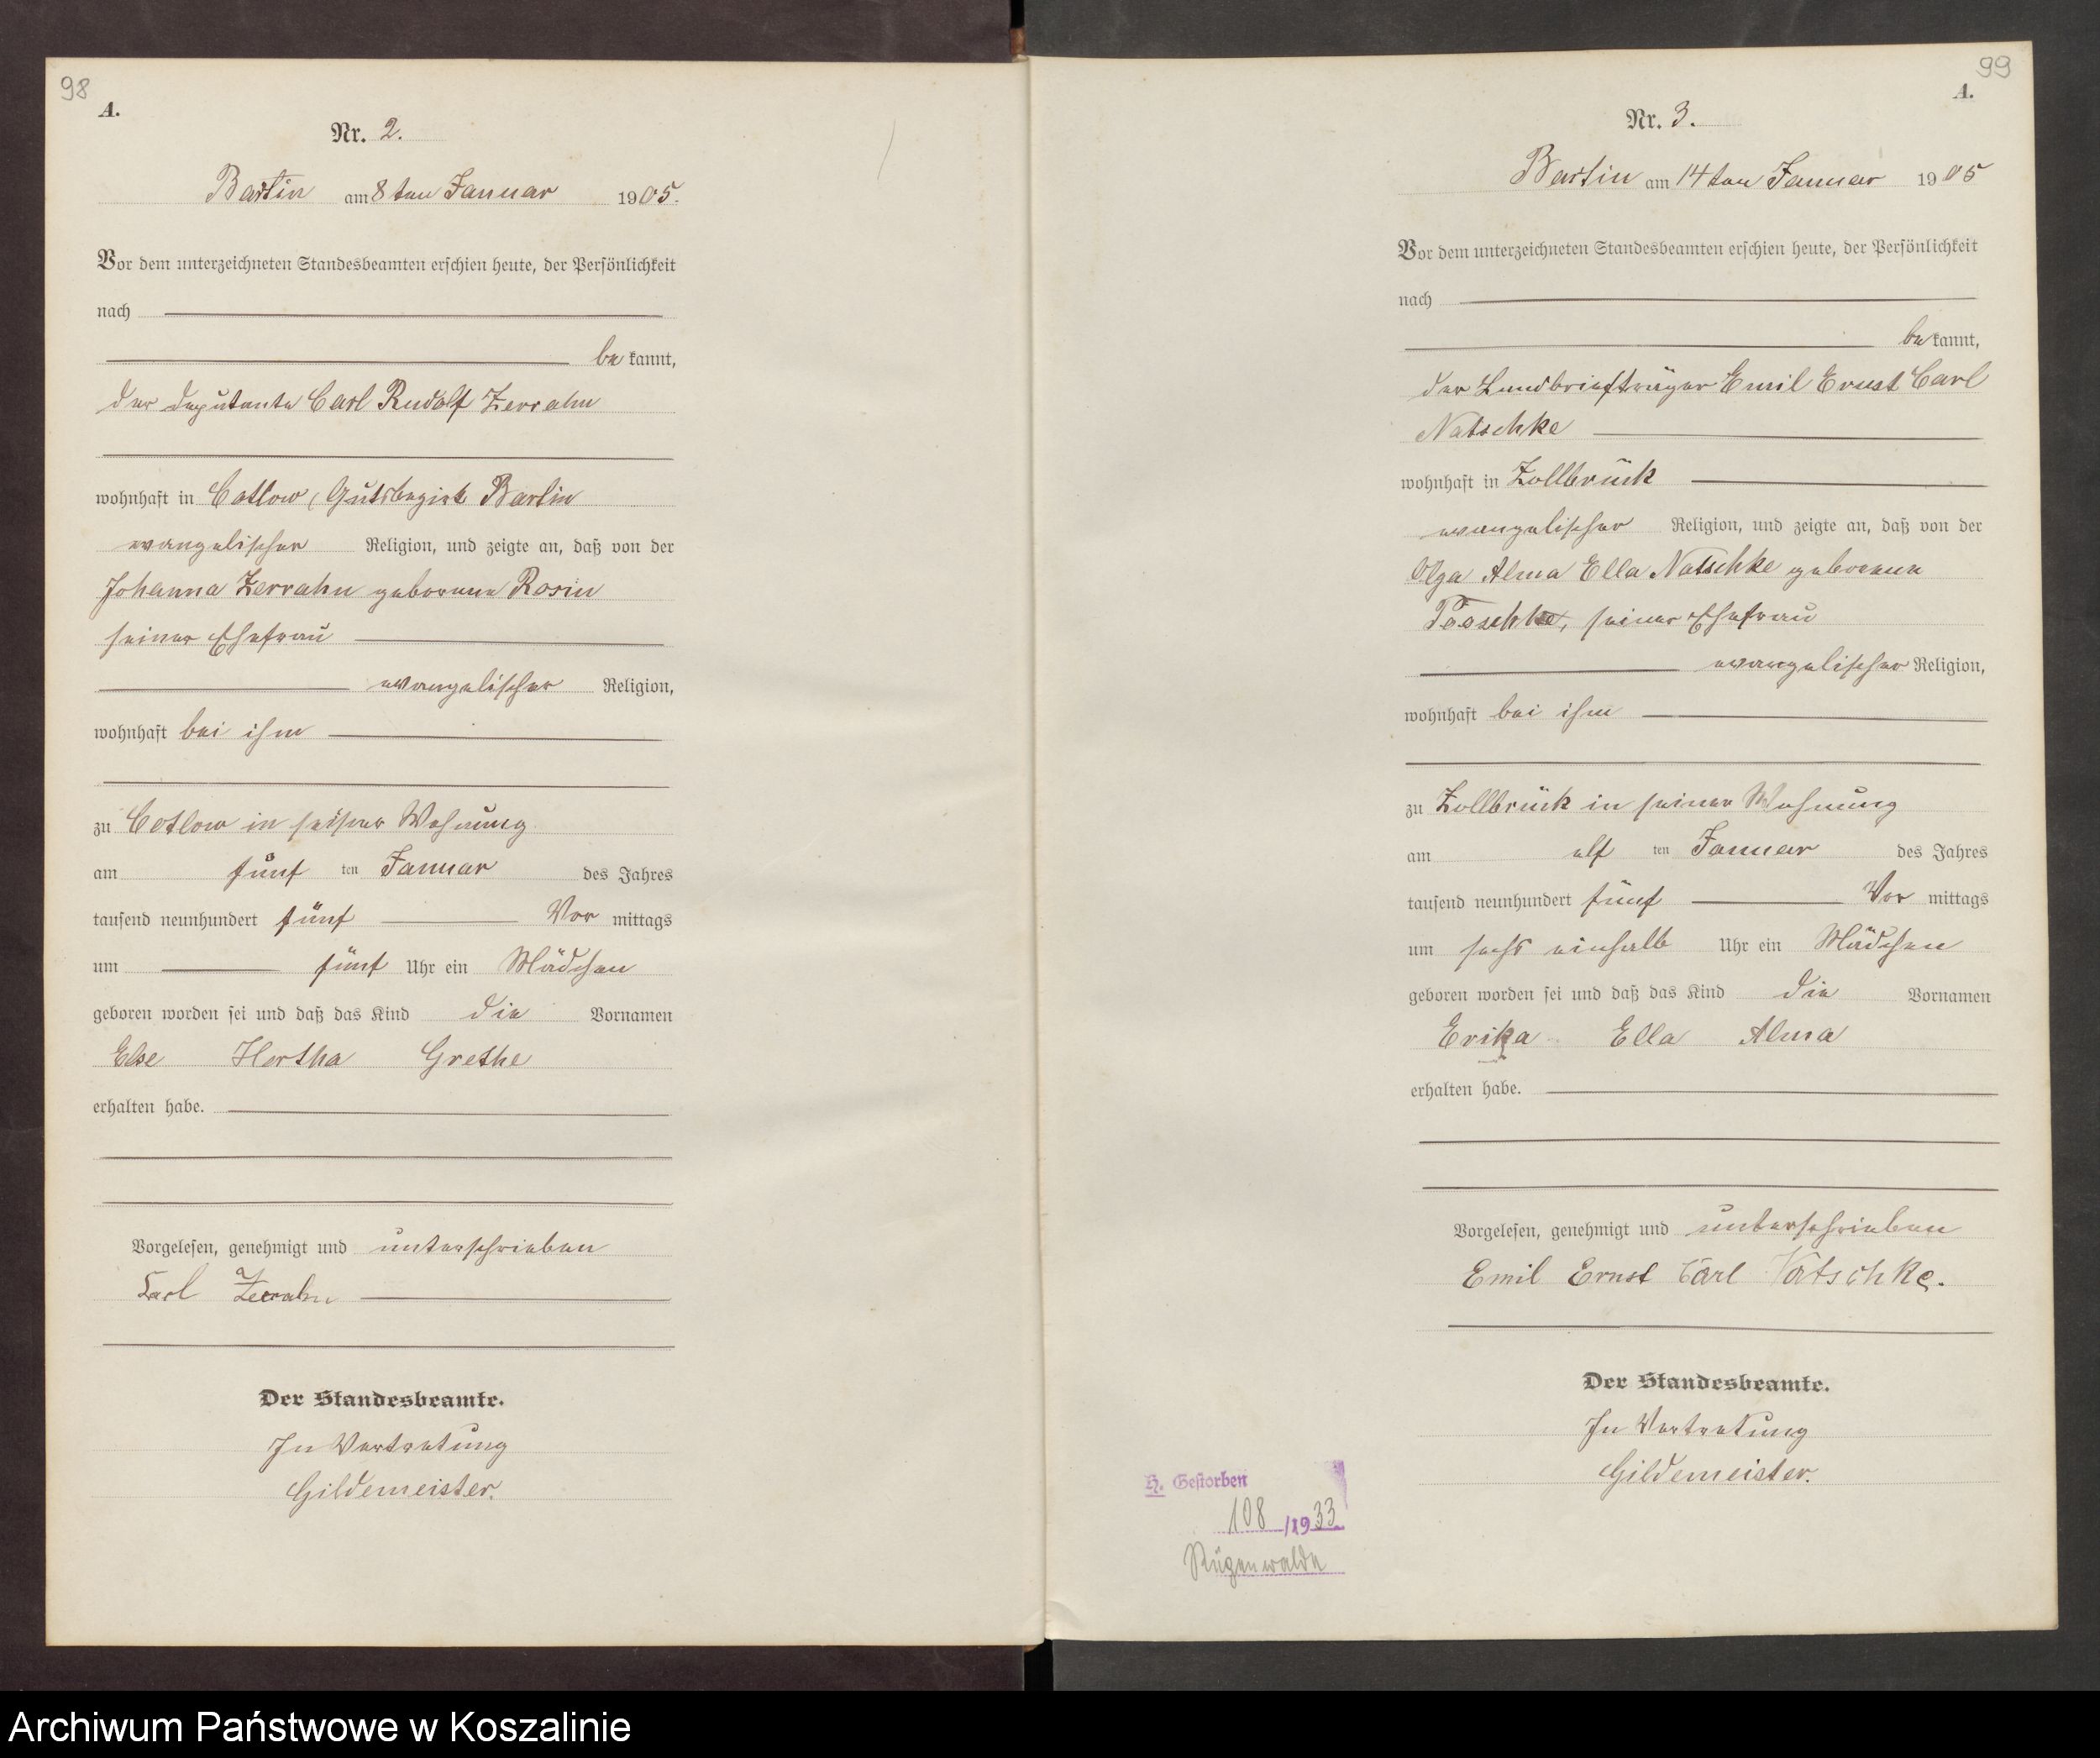 98
A.
Nr. 2.
Bartin am 8ten Januar 1905.
Vor dem unterzeichneten Standesbeamten erschien heute, der Persönlichkeit
nach
be kannt,
der Deputante Carl Rudolf Zerrahn
wohnhaft in Catlow, Gutsbezirk Bartin
evangelischer Religion, und zeigte an, daß von der
Johanna Zerrahn geborene Rosin
seiner Ehefrau
evangelischer Religion,
wohnhaft bei ihm
zu Catlow in seiner Wohnung
am fünf ten Januar des Jahres
tausend neunhundert fünf Vor mittags
um fünf Uhr ein Mädchen
geboren worden sei und daß das Kind die Vornamen
Else Hertha Grethe
erhalten habe.
Vorgelesen, genehmigt und unterschrieben
Carl Zerrahn
Der Standesbeamte.
In Vertretung
Gildemeister.
99
A.
Nr. 3.
Bartin am 14ten Januar 1905
Vor dem unterzeichneten Standesbeamten erschien heute, der Persönlichkeit
nach
be kannt,
der Landbriefträger Emil Ernst Carl
Natschke
wohnhaft in Zollbrück
evangelischer Religion, und zeigte an, daß von der
Olga Alma Ella Natschke geborene
seiner Ehefrau
evangelischer Religion,
wohnhaft bei ihm
zu Zollbrück in seiner Wohnung
am elf ten Januar des Jahres
tausend neunhundert fünf Vor mittags
um sechs einhalb Uhr ein Mädchen
geboren worden sei und daß das Kind die Vornamen
Erika Ella Alma
erhalten habe.
Vorgelesen, genehmigt und unterschrieben
Emil Ernst Carl Natschke.
Der Standesbeamte.
In Vertretung
Gildemeister.
H. Gestorben
108/1933
Rügenwalde
Archiwum Państwowe w Koszalinie